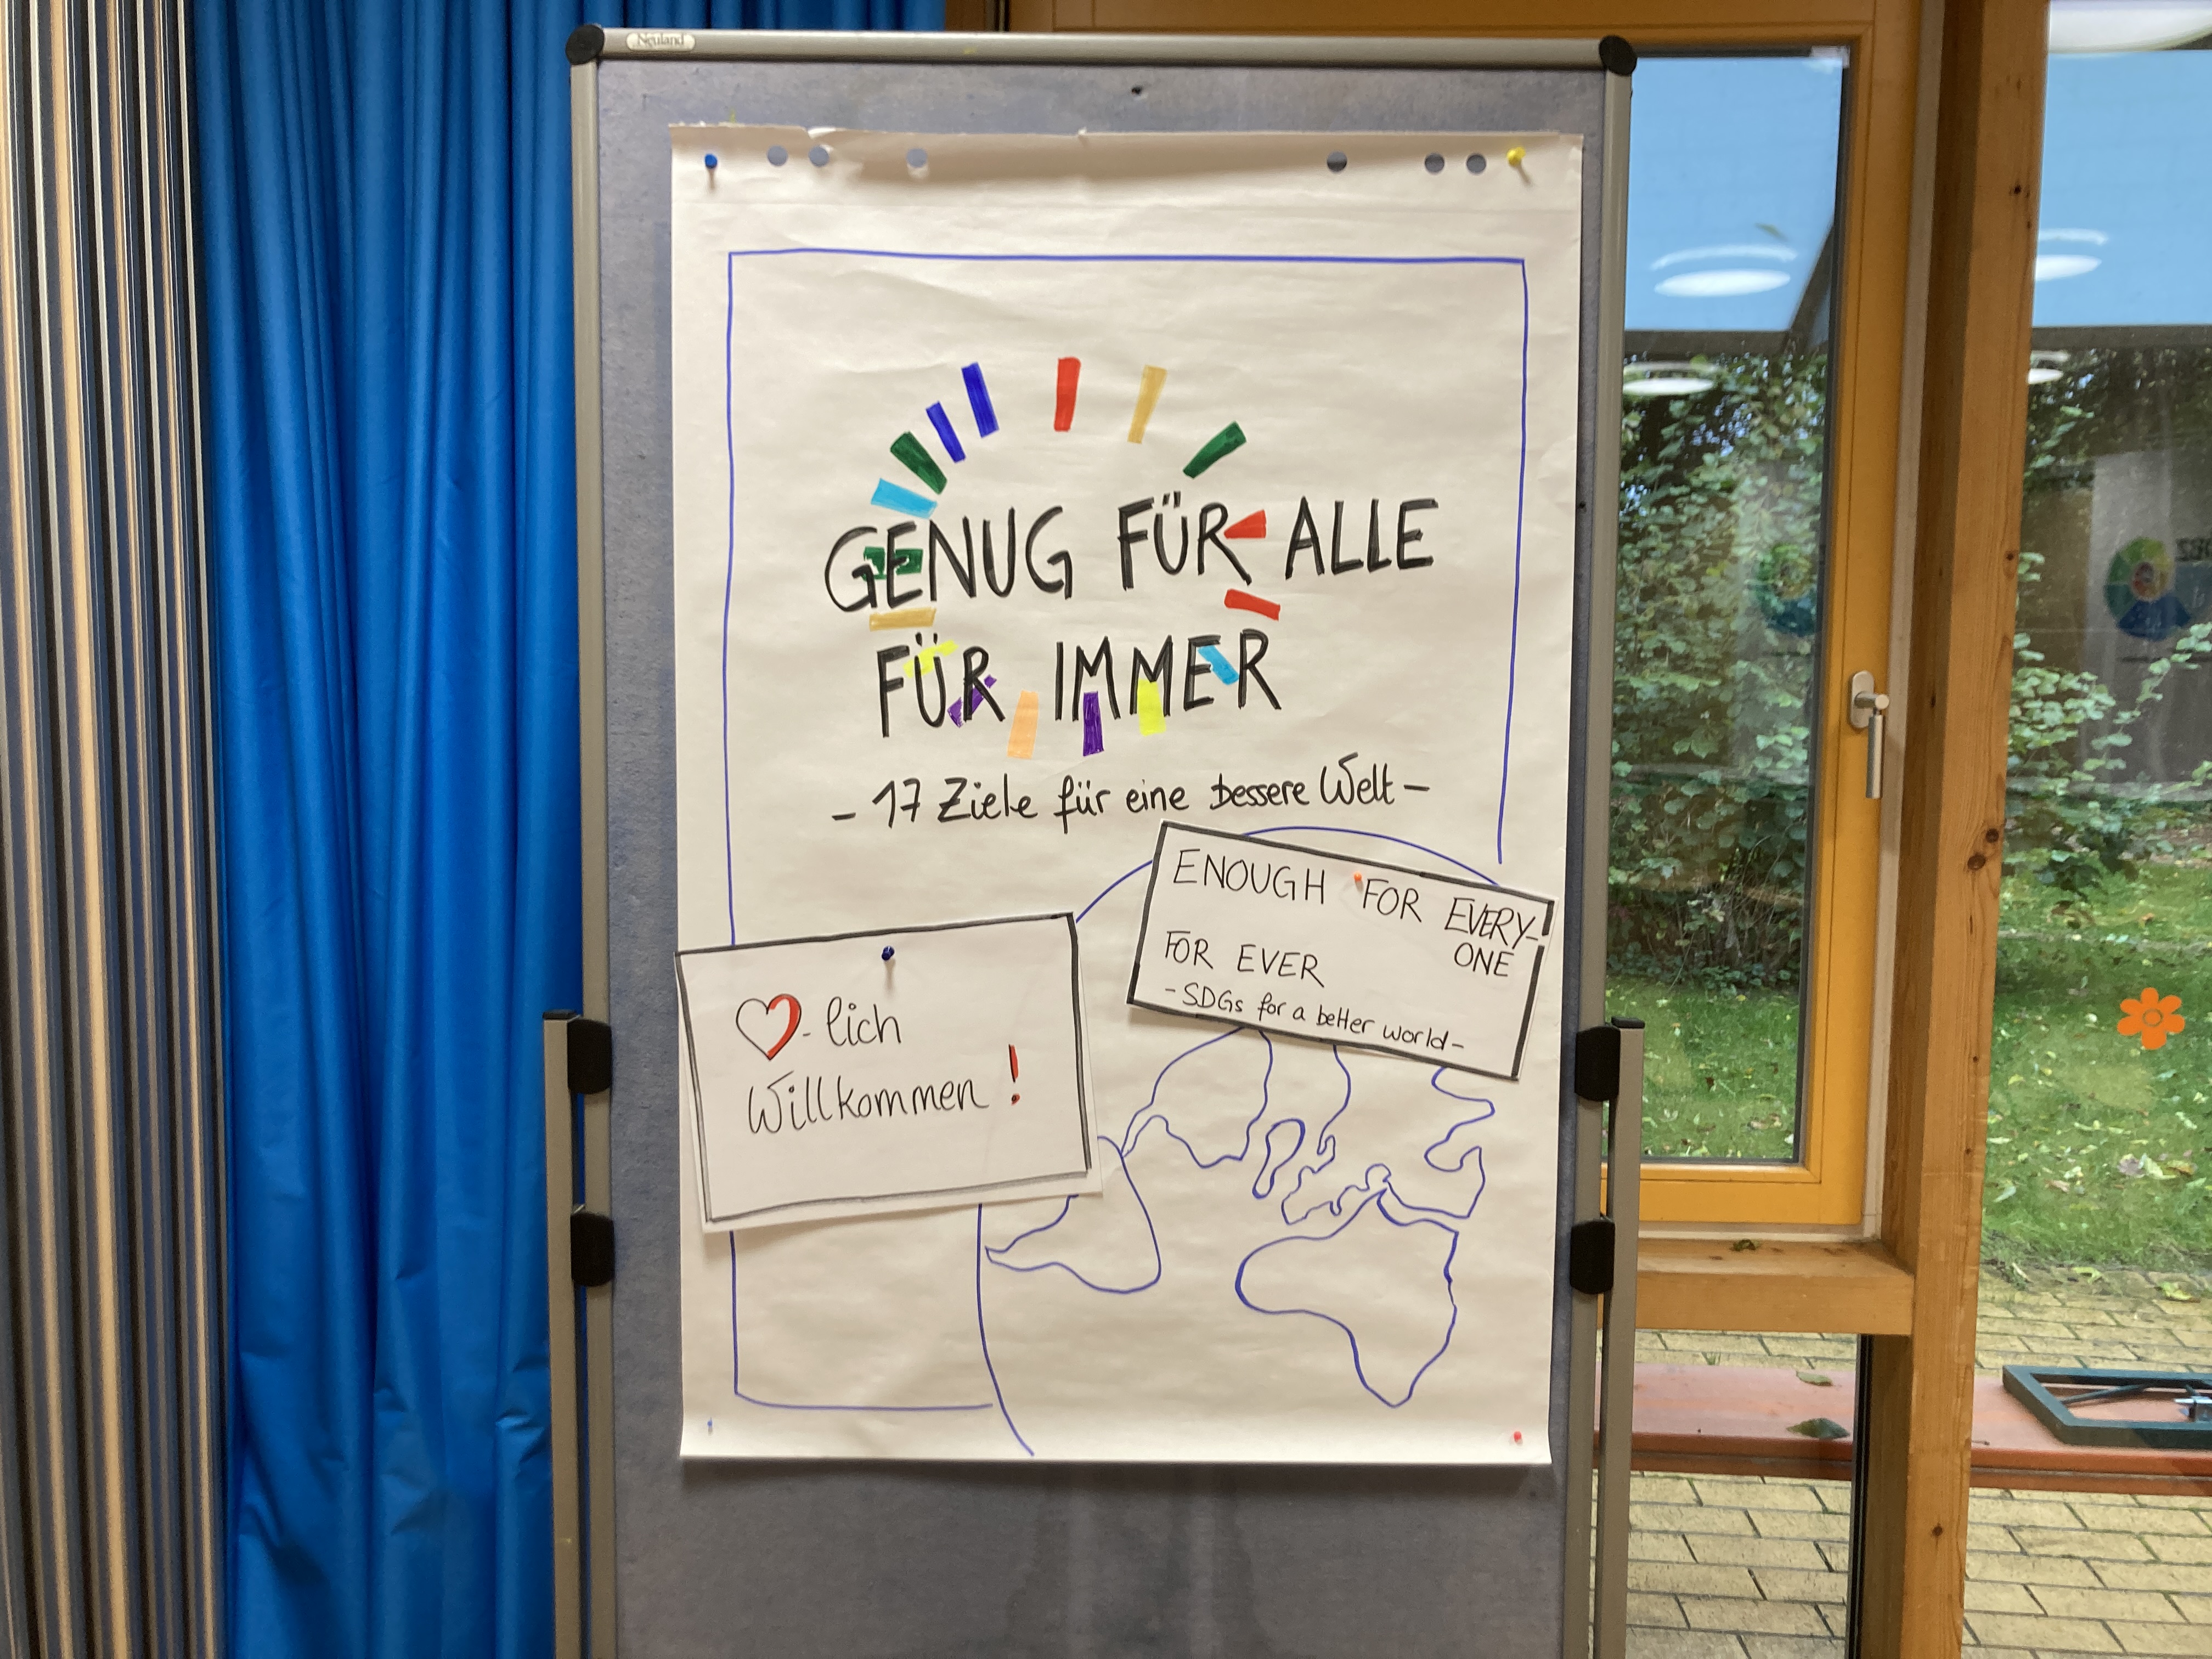 Neuland
GENUG FÜR ALLE
FÜR IMMER
- 17 Ziele für eine bessere Welt -
ENOUGH FOR EVERY-
ONE
FOR EVER
- SDGs for a better world -
- lich
Willkommen !